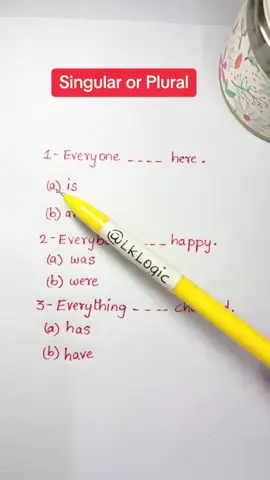 Singular or Plural
1- Everyone ---- here.
(a) is
(b)
2- ---- happy.
(a) was
(b) were
3- Everything ----
(a) has
(b) have
@LKLogic